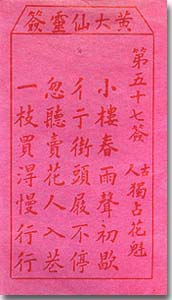 黃大仙靈簽
第五十七簽
古人獨占花魁
小樓春雨聲初歇
彳亍街頭屐不停
忽聽賣花人入巷
一枝買得慢行行